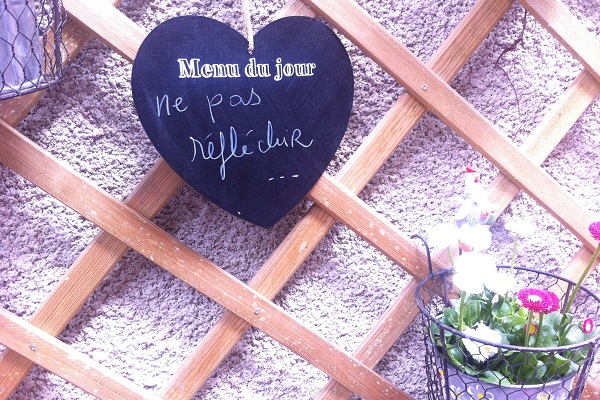 Menu du jour
ne pas
réfléchir
...